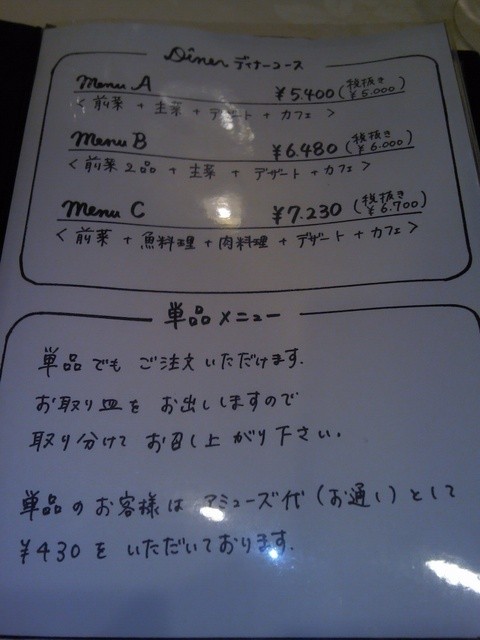 Dîner ディナーコース
Menu A ¥5.400 (税抜き ¥5.000)
<前菜 + 主菜 + デザート + カフェ>
Menu B ¥6.480 (税抜き ¥6.000)
<前菜2品 + 主菜 + デザート + カフェ>
Menu C ¥7.230 (税抜き ¥6.700)
<前菜 + 魚料理 + 肉料理 + デザート + カフェ>
単品メニュー
単品でもご注文いただけます.
お取り皿をお出ししますので
取り分けてお召し上がり下さい.
単品のお客様はアミューズ代(お通し)として
¥430をいただいております.